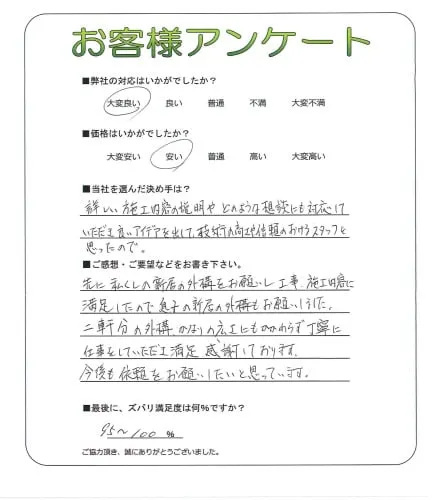 お客様アンケート
■弊社の対応はいかがでしたか？
大変良い 良い 普通 不満 大変不満
■価格はいかがでしたか？
大変安い 安い 普通 高い 大変高い
■当社を選んだ決め手は？
詳しい施工内容の説明や どのような相談にも対応して
いただき良いアイデアを出して、技術の向上や信頼のおけるスタッフと
思ったので。
■ご感想・ご要望などをお書き下さい。
先に 私くしの新居の外構をお願いし 工事、施工内容に
満足したので 息子の新居の外構もお願いしました。
二軒分の外構、かなりの広さにもかかわらず丁寧に
仕事をしていただき満足 感謝しております。
今後も依頼をお願いしたいと思っています。
■最後に、ズバリ満足度は何％ですか？
95〜100 ％
ご協力頂き、誠にありがとうございました。